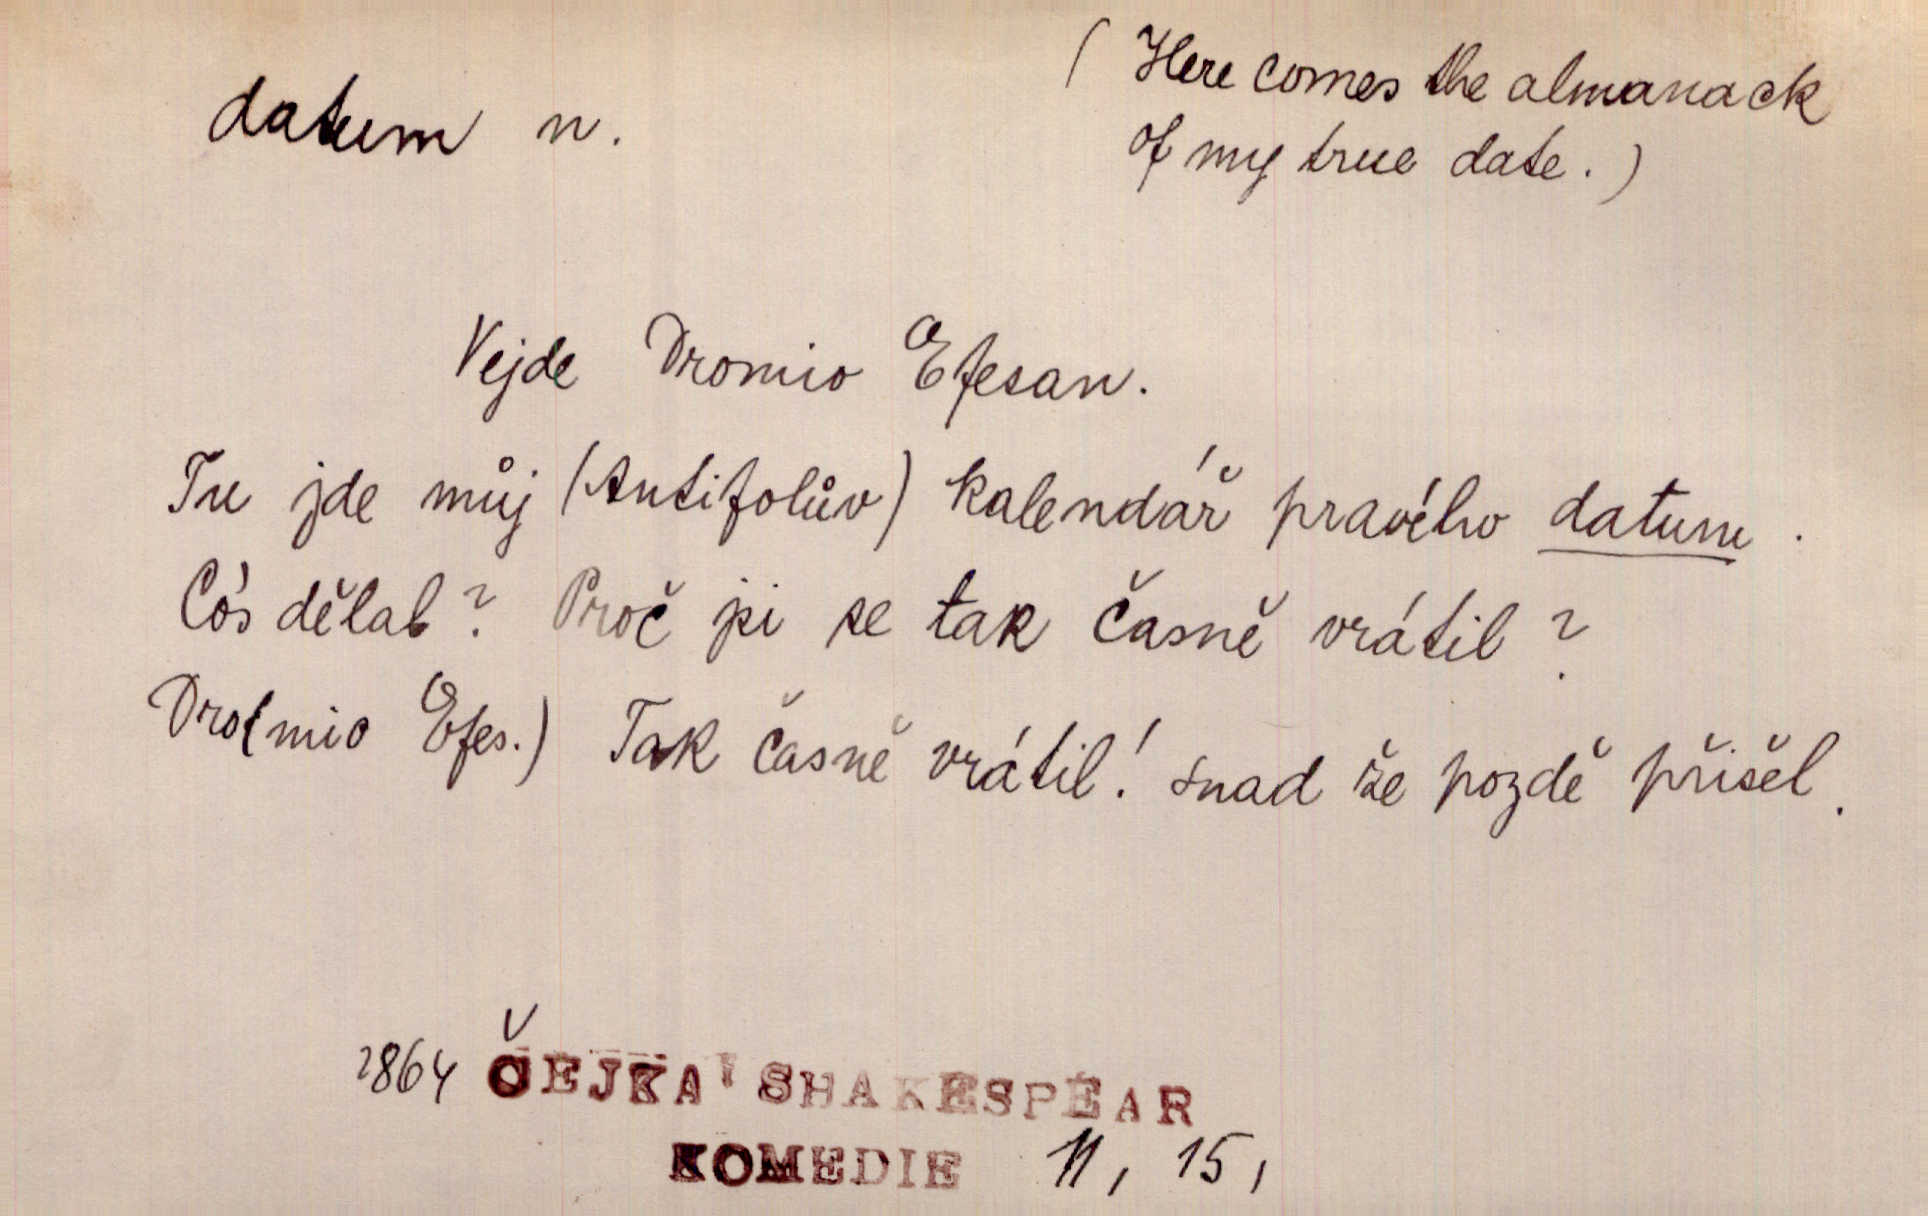 datum n.
( Here comes the almanack
of my true date. )
Vejde Dromio Efesan.
Tu jde můj (Antifolův) kalendář pravého datum.
Co's dělal? Proč jsi se tak časně vrátil?
Dro(mio Efes.) Tak časně vrátil! snad že pozdě přišel.
1864 ČEJKA SHAKESPEAR
KOMEDIE 11, 15,